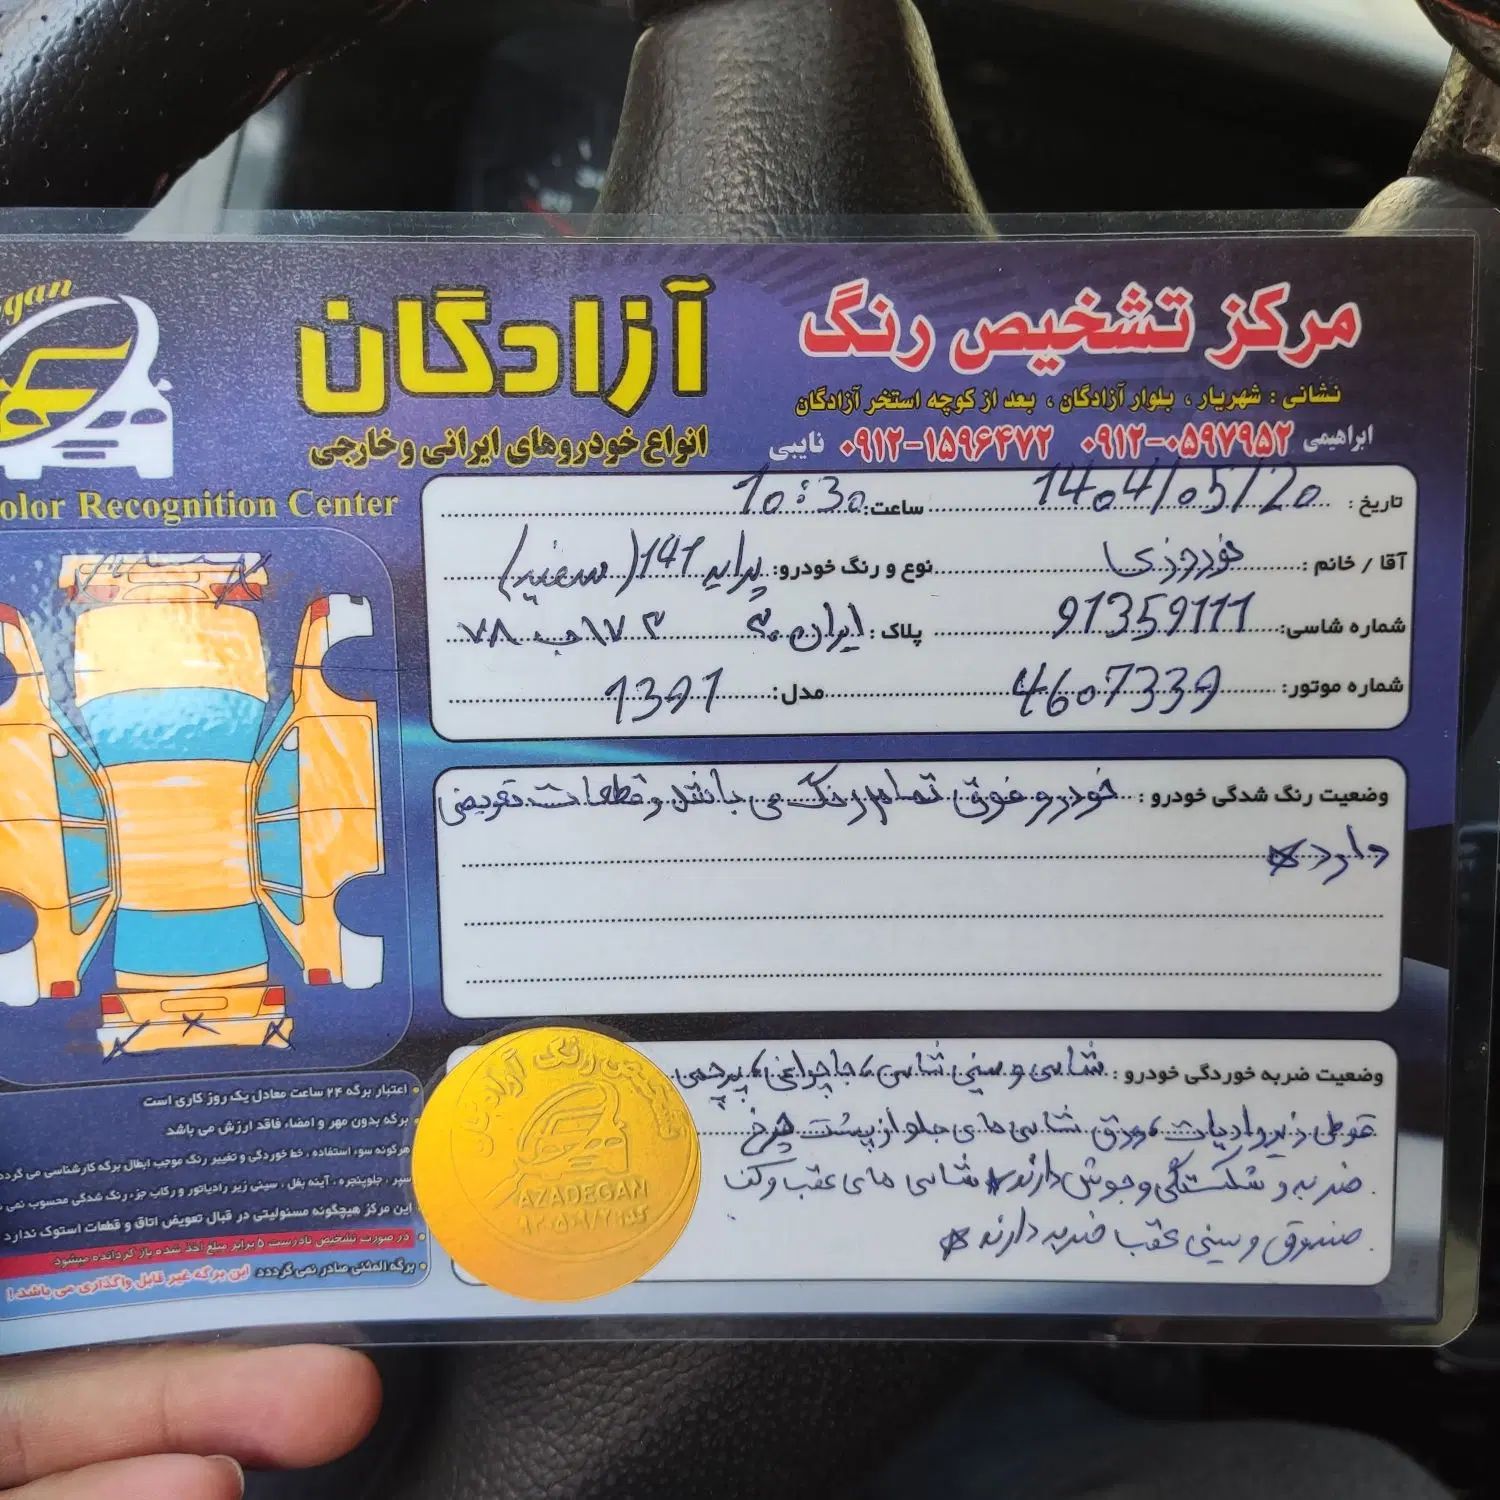 مرکز تشخیص رنگ
آزادگان
نشانی : شهریار ، بلوار آزادگان ، بعد از کوچه استخر آزادگان
ابراهیمی ۰۹۱۲-۰۵۹۷۹۵۲ ۰۹۱۲-۱۵۹۶۴۷۲ نایبی
انواع خودروهای ایرانی و خارجی
olor Recognition Center
تاریخ : 1404/05/20 ساعت: 10:30
آقا / خانم : نوروزی نوع و رنگ خودرو: پراید 141 (سفید)
شماره شاسی: 91359111 پلاک : ایران ۲۰ ۱۷۳ ب ۷۸
شماره موتور: 4607339 مدل: 1391
وضعیت رنگ شدگی خودرو : خودرو فوق تمام رنگ می باشد و قطعات تعویضی
دارد
وضعیت ضربه خوردگی خودرو : شاسی و سینی شاسی، جا چراغی، پرچمی
قوطی زیر رادیات، ورق شاسی های جلو از پشت چرخ
ضربه و شکستگی و جوش دارند شاسی های عقب و کف
صندوق و سینی عقب ضربه دارند
تشخیص رنگ آزادگان
AZADEGAN
اعتبار برگه ۲۴ ساعت معادل یک روز کاری است
برگه بدون مهر و امضاء فاقد ارزش می باشد
هرگونه سوء استفاده ، خط خوردگی و تغییر رنگ موجب ابطال برگه کارشناسی می گردد
سپر ، جلوپنجره ، آینه بغل ، سینی زیر رادیاتور و رکاب جزء رنگ شدگی محسوب نمی
این مرکز هیچگونه مسئولیتی در قبال تعویض اتاق و قطعات استوک ندارد
در صورت تشخیص نادرست ۵ برابر مبلغ اخذ شده باز گردانده میشود
برگه المثنی صادر نمی گردد این برگه غیر قابل واگذاری می باشد !